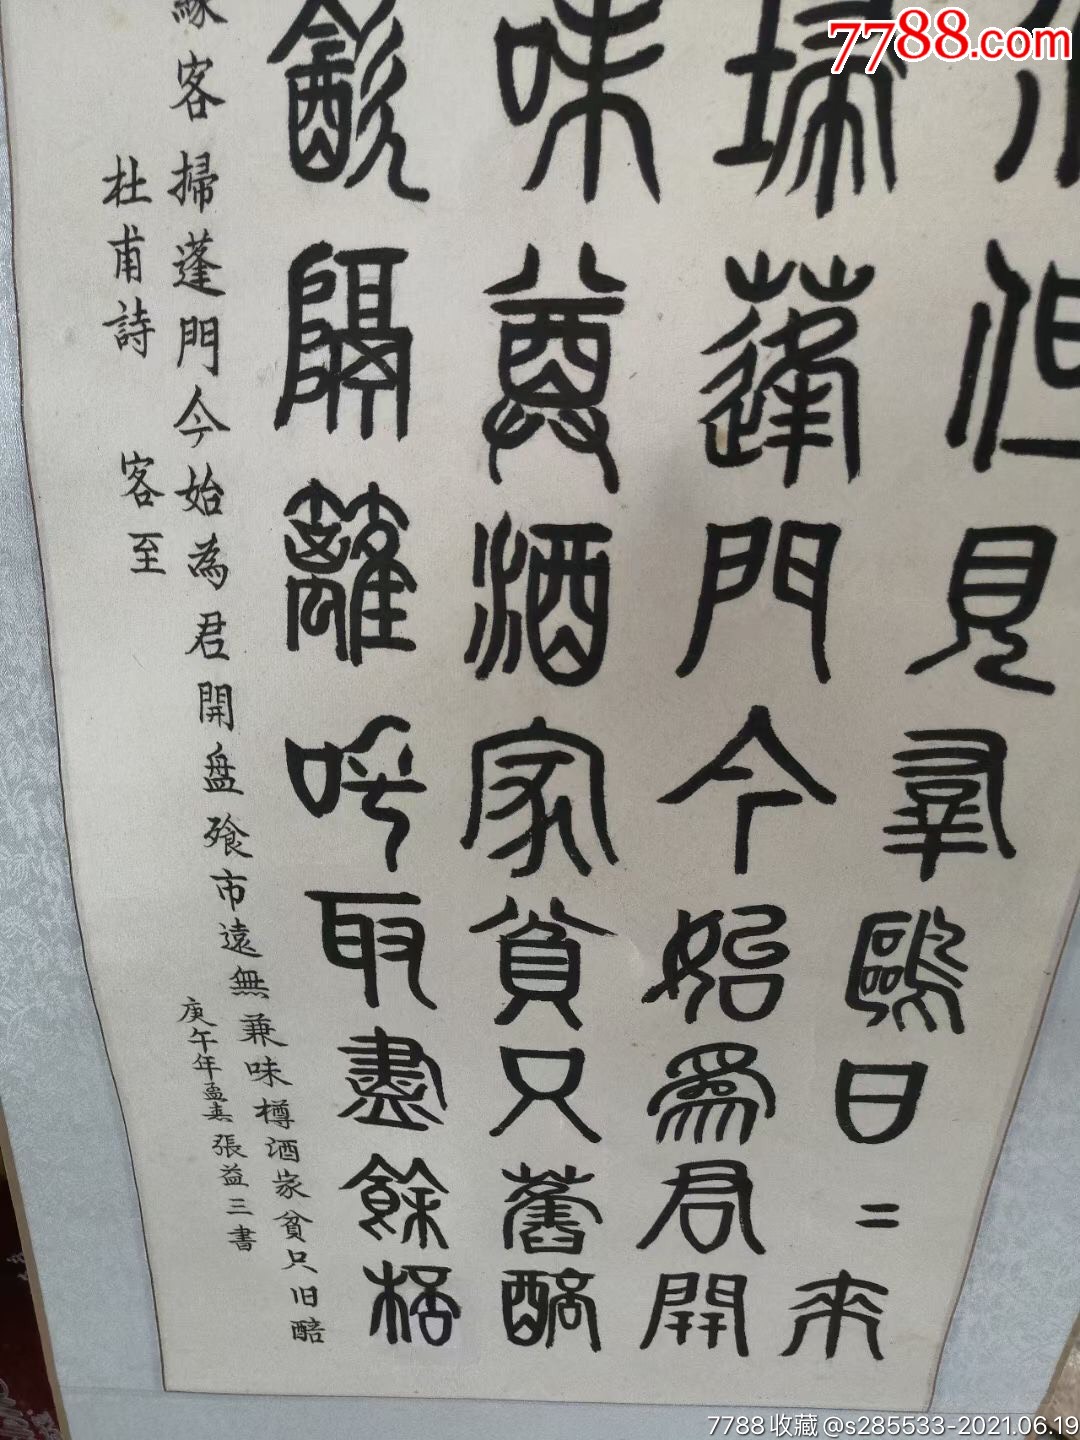 7788.com
但見羣鷗日二來
掃蓬門今始為君開
味尊酒家貧只舊醅
飲隔籬呼取盡餘桮
緣客掃蓬門今始為君開盘飱市遠無兼味樽酒家貧只旧醅
杜甫詩 客至
庚午年孟春張益三書
7788收藏@s285533-2021.06.19